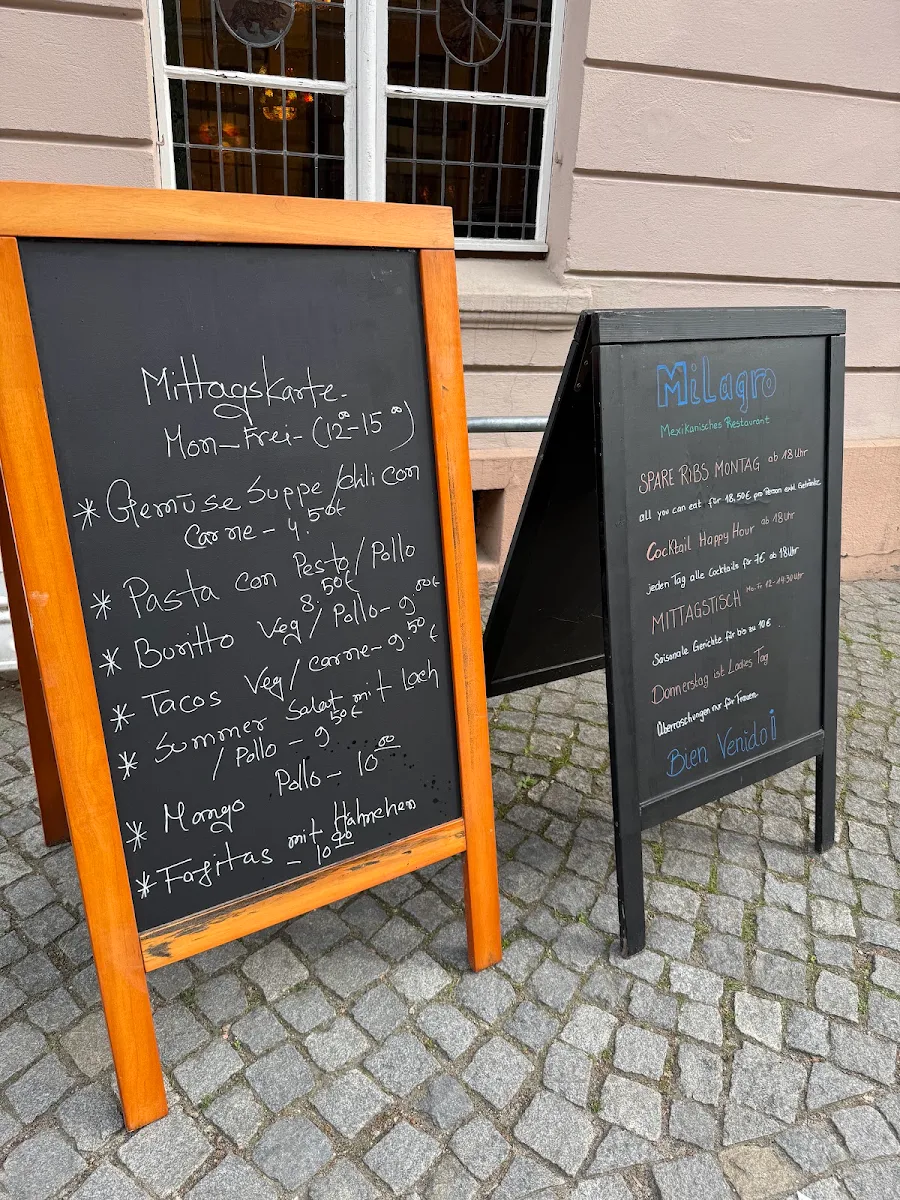 Mittagskarte-
Mon-Frei- (12⁰⁰-15⁰⁰)
* Gemüse Suppe/chili con
Carne - 4.50€
* Pasta con Pesto/Pollo
8.50€
* Buritto Veg/Pollo- 9.00€
* Tacos Veg/carne- 9.50€
* Summer Salat mit Lach
/Pollo - 9.50€
* Mango Pollo - 10.00
* Fajitas mit Hähnchen
- 10.90
Milagro
Mexikanisches Restaurant
SPARE RIBS MONTAG ab 18 Uhr
all you can eat für 18,50€ pro Person exkl. Getränke
Cocktail Happy Hour ab 18 Uhr
jeden Tag alle Cocktails für 7€ ab 18 Uhr
MITTAGSTISCH Mo.-Fr. 12-14:30 Uhr
Saisonale Gerichte für bis zu 10€
Donnerstag ist Ladies Tag
Überraschungen nur für Frauen
Bien Venido¡